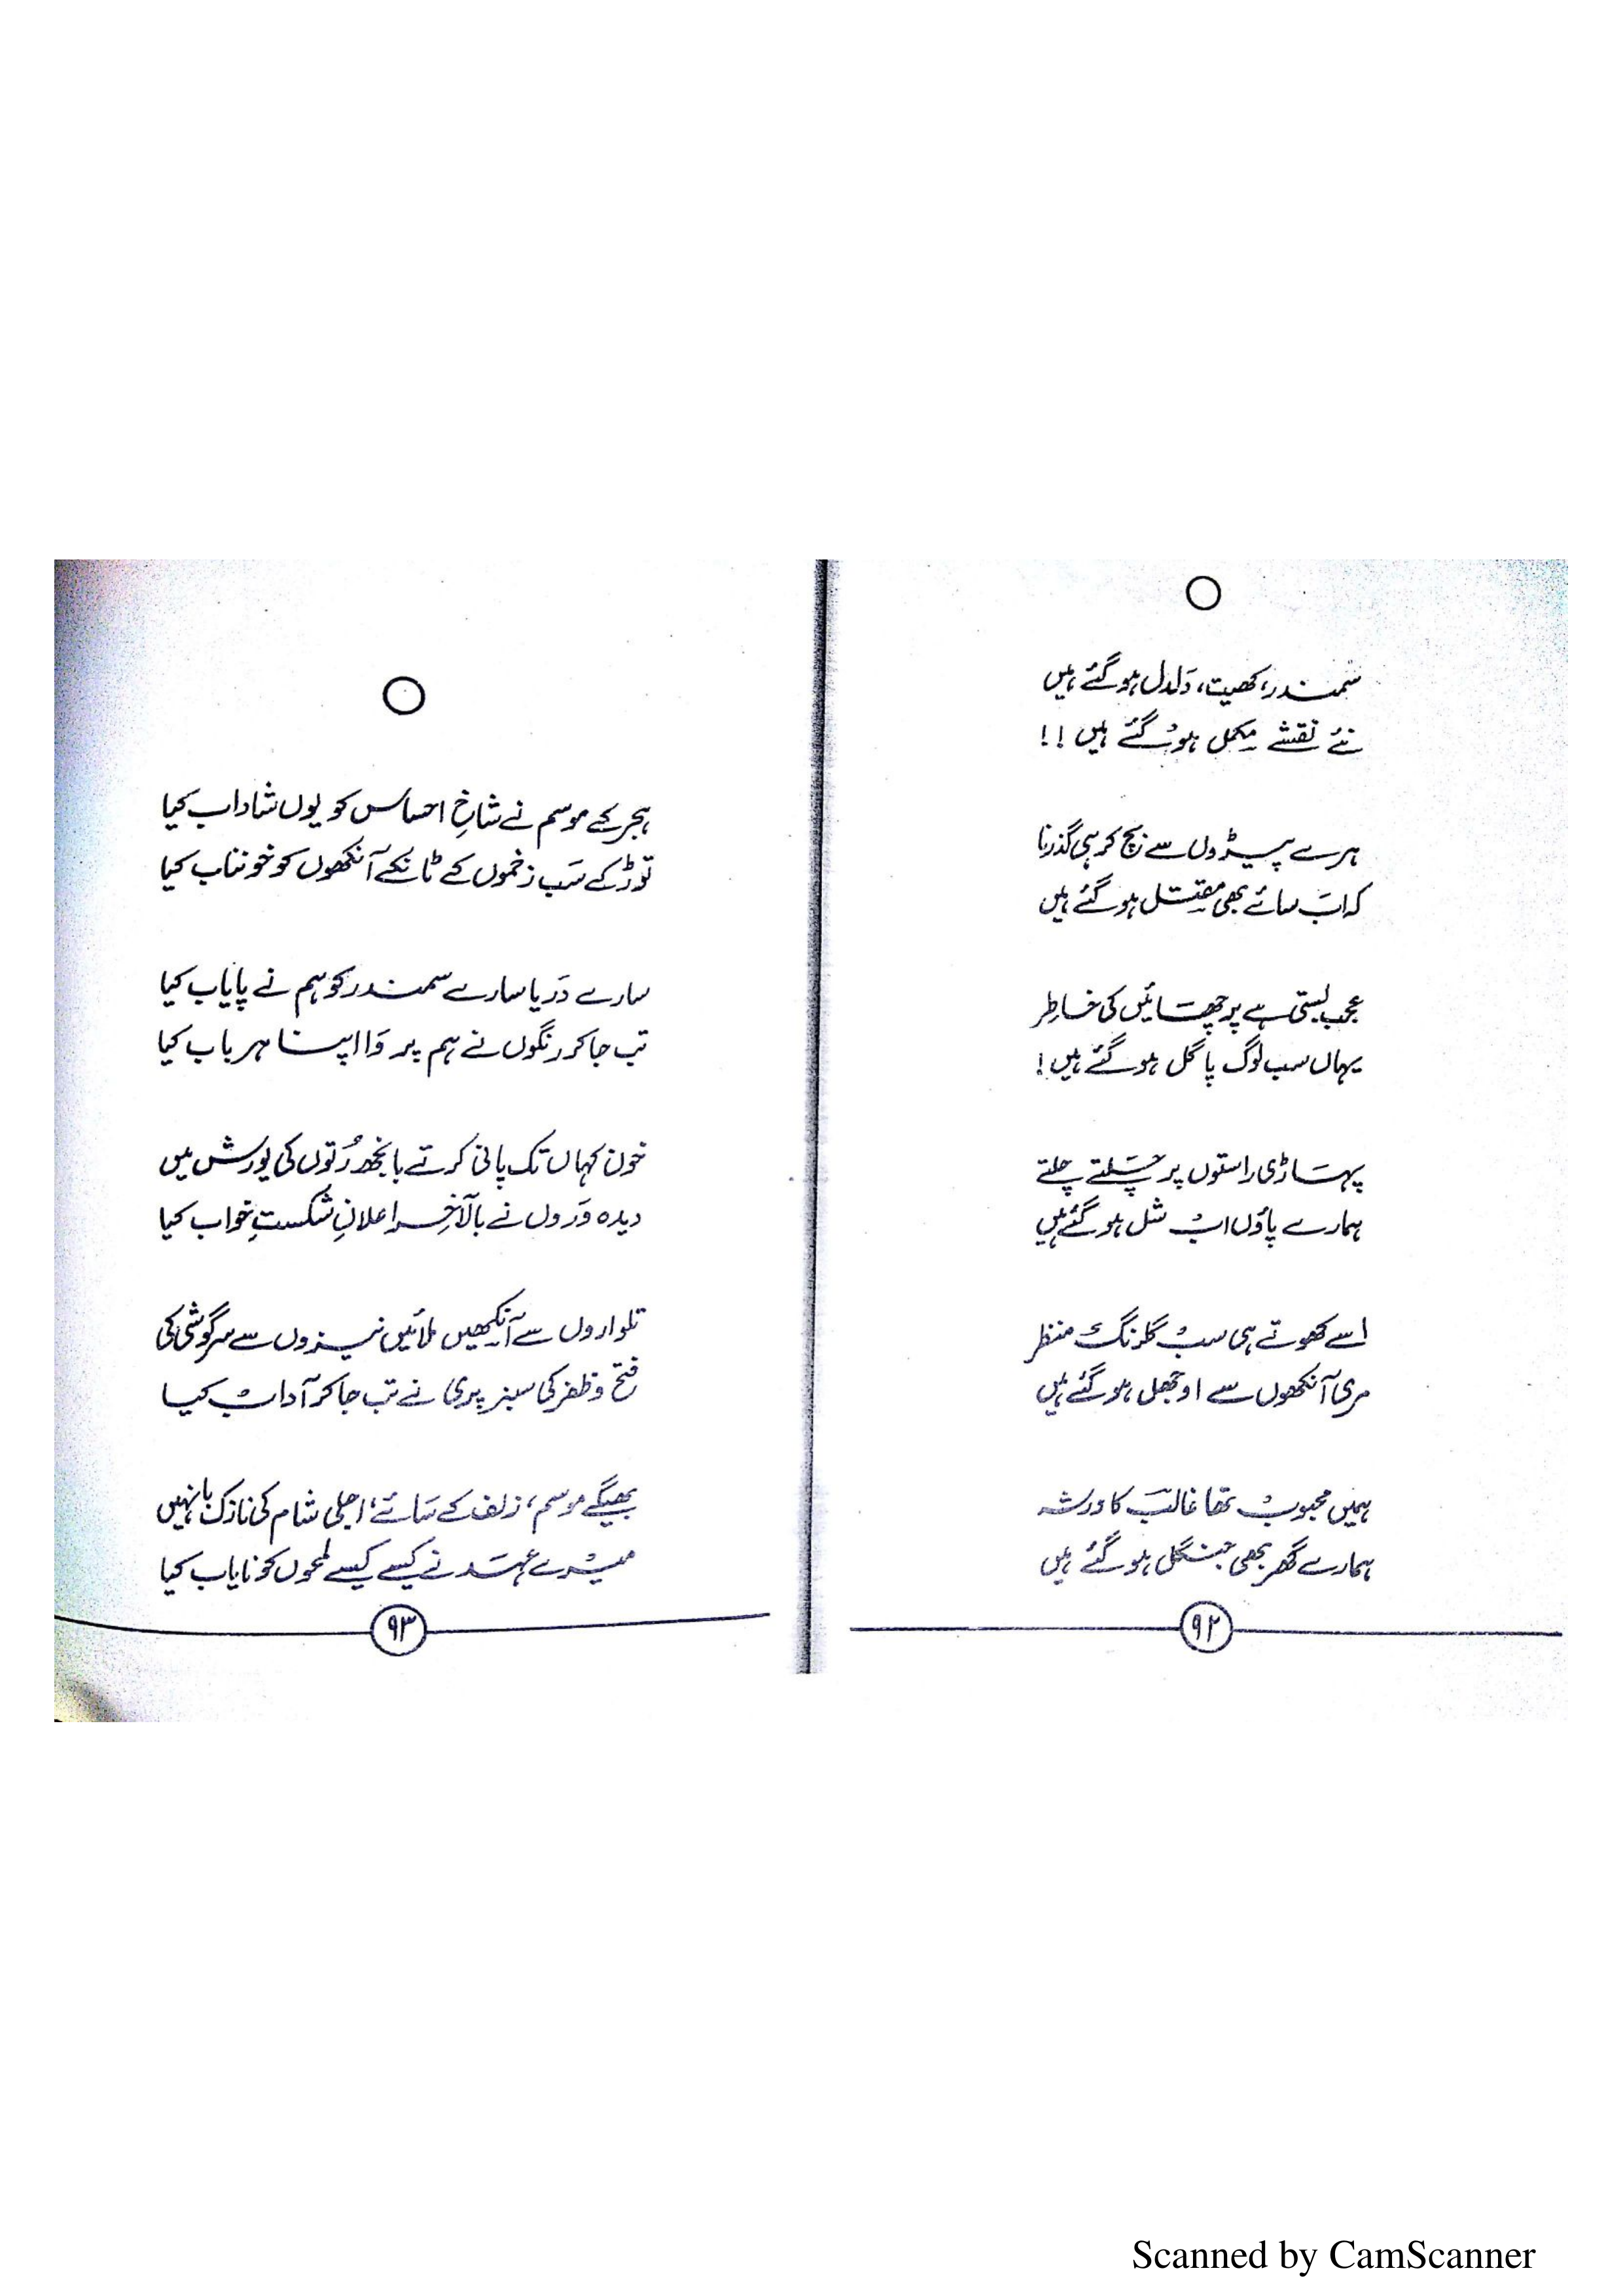 سمندر، کھیت، دَلدل ہو گئے ہیں
نئے نقشے مکمل ہو گئے ہیں !!
ہرے پیڑوں سے بچ کر ہی گذرنا
کہ اب سائے بھی مقتل ہو گئے ہیں
عجب بستی ہے پرچھائیں کی خاطِر
یہاں سب لوگ پاگل ہو گئے ہیں !
پہاڑی راستوں پر چلتے چلتے
ہمارے پاؤں اب شل ہو گئے ہیں
اسے کھوتے ہی سب گلرنگ منظر
مری آنکھوں سے اوجھل ہو گئے ہیں
ہمیں محبوب تھا غالبؔ کا ورثہ
ہمارے گھر بھی جنگل ہو گئے ہیں
۹۲
ہجر کے موسم نے شاخِ احساس کو یوں شاداب کیا
توڑ کے سَب زخموں کے ٹانکے آنکھوں کو خونناب کیا
سارے دَریا سارے سمندر کو ہم نے پایاب کیا
تب جا کر رنگوں نے ہم پر وَا اپنا ہر باب کیا
خون کہاں تک پانی کرتے بانجھ رُتوں کی یورش میں
دیدہ وَروں نے بالآخِر اعلانِ شکستِ خواب کیا
تلواروں سے آنکھیں ملائیں نیزوں سے سرگوشی کی
فتح و ظفر کی سبز پری نے تب جا کر آداب کیا
بھیگے موسم، زلف کے سَائے، اجلی شام کی نازک بانہیں
میرے عہد نے کیسے کیسے لمحوں کو نایاب کیا
۹۳
Scanned by CamScanner